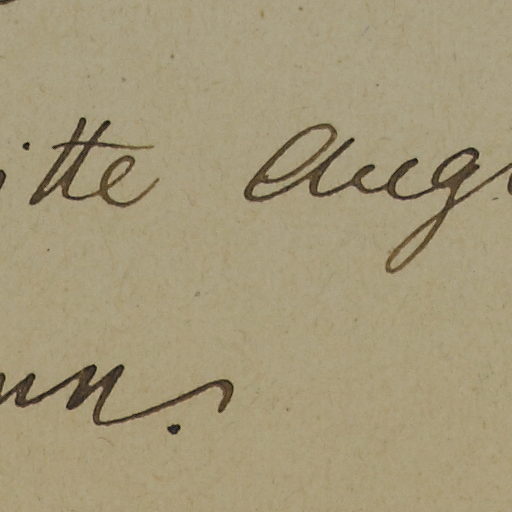 itte Aug
nn.